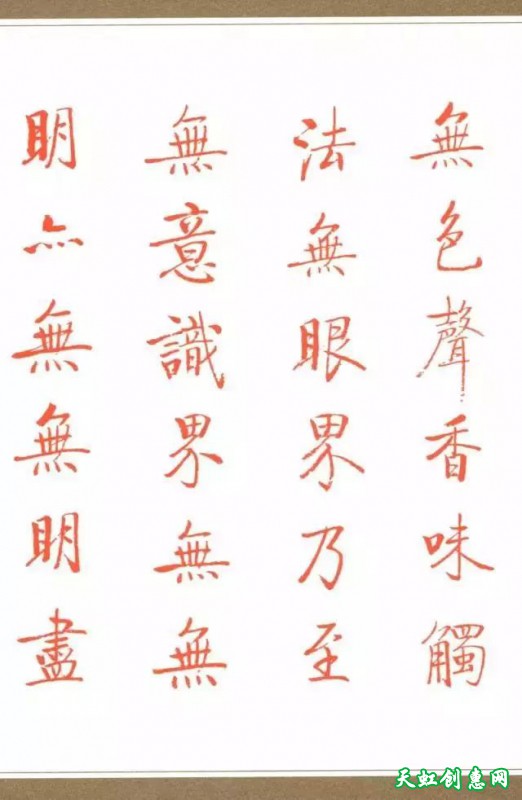 無色聲香味觸
法無眼界乃至
無意識界無無
明亦無無明盡
天虹创惠网